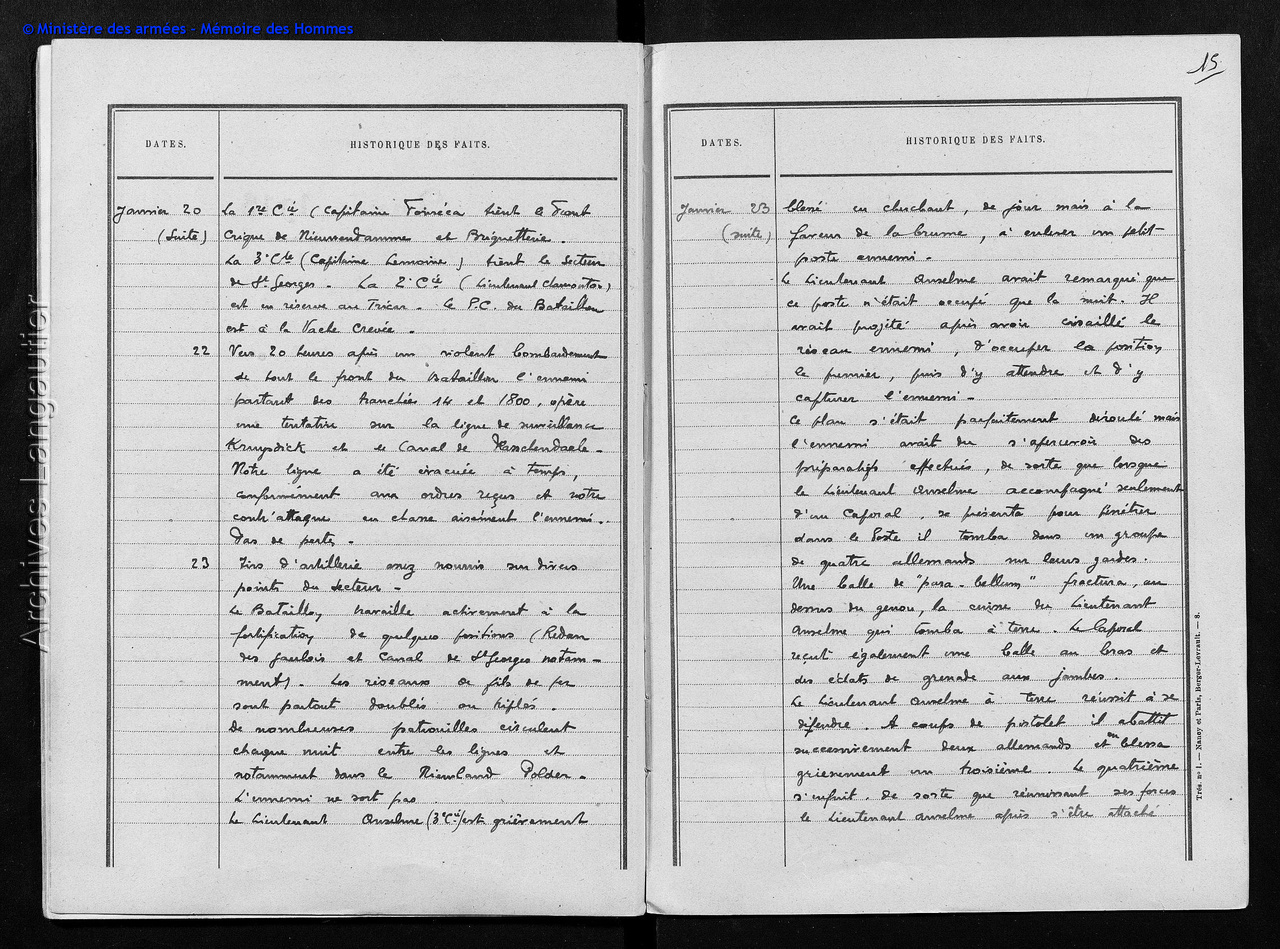 © Ministère des armées - Mémoire des Hommes
Archives Langautier
15
DATES.
HISTORIQUE DES FAITS.
Janvier 20
(Suite)
La 1re Cie (Capitaine Fonséca tient le Front
Crique de Nieuwendamme et Briquetterie.
La 3e Cie (Capitaine Lemoine) tient le Secteur
de St Georges. La 2e Cie (Lieutenant
est en réserve au Tricar. Le P.C. du Bataillon
est à la Vache Crevée.
22 Vers 20 heures après un violent bombardement
de tout le front du Bataillon l'ennemi
partant des tranchées 14 et 1800, opère
une tentative sur la ligne de surveillance
Kruysdick et le Canal de
Notre ligne a été évacuée à temps,
conformément aux ordres reçus et notre
contr'attaque en chasse aisément l'ennemi.
Pas de pertes -
23 Tirs d'artillerie assez nourris sur divers
points du Secteur -
Le Bataillon travaille activement à la
fortification de quelques positions (Redan
des Gaulois et Canal de St Georges notam-
ment). Les réseaux de fils de fer
sont partout doublés ou triplés.
De nombreuses patrouilles circulent
chaque nuit entre les lignes et
notamment dans le Nieuwland Polder -
L'ennemi ne sort pas.
Le Lieutenant Anselme (3e Cie) est grièvement
DATES.
HISTORIQUE DES FAITS.
Janvier 23
(suite)
blessé en cherchant, de jour mais à la
faveur de la brume, à enlever un petit
poste ennemi -
Le Lieutenant Anselme avait remarqué que
ce poste n'était occupé que la nuit. Il
avait projeté après avoir cisaillé le
réseau ennemi, d'occuper la position
le premier, puis d'y attendre et d'y
capturer l'ennemi -
Ce plan s'était parfaitement déroulé mais
l'ennemi avait du s'apercevoir des
préparatifs effectués, de sorte que lorsque
le Lieutenant Anselme accompagné seulement
d'un Caporal, se présenta pour pénétrer
dans le Poste il tomba dans un groupe
de quatre allemands sur leurs gardes.
Une balle de "para-bellum" fractura, au
dessus du genou, la cuisse du Lieutenant
Anselme qui tomba à terre. Le Caporal
reçut également une balle au bras et
des éclats de grenade aux jambes.
Le Lieutenant Anselme à terre réussit à se
défendre. A coups de pistolet il abattit
successivement deux allemands et en blessa
grièvement un troisième. Le quatrième
s'enfuit. de sorte que réunissant ses forces
le Lieutenant Anselme après s'être attaché
Trés. n° 1. — Nancy et Paris, Berger-Levrault. — 8.